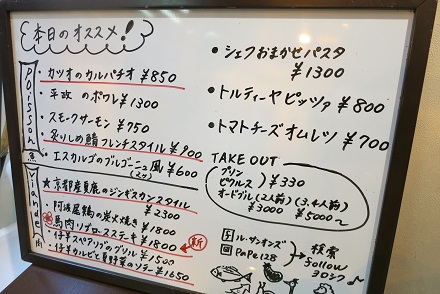 本日のオススメ!
Poisson
魚
・カツオのカルパチオ ¥850
・平政のポワレ ¥1300
・スモークサーモン ¥750
・炙りしめ鯖フレンチスタイル ¥900
・エスカルゴのブルゴーニュ風 ¥600
Viande
肉
★京都産真鹿のジンギスカンスタイル
¥2300
・阿波尾鶏の炭火焼き ¥1800
・馬肉リブロースステーキ ¥1800 新
・仔羊スペアリブのグリル ¥1500
・仔牛カルビと夏野菜のソテー ¥1650
・シェフおまかせパスタ
¥1300
・トルティーヤピッツァ ¥800
・トマトチーズオムレツ ¥700
TAKE OUT
プリン
ピクルス ¥330
オードブル(2人前) (3,4人前)
¥3000 ¥5000〜
f ル・サンオンズ
PaPe128
検索
follow
ヨロシク